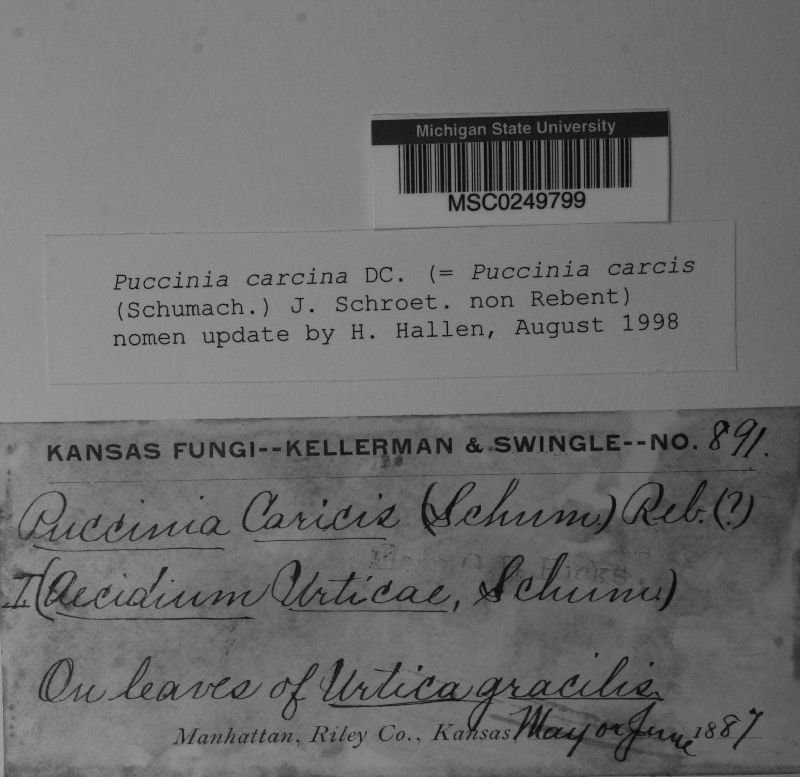 Michigan State University
MSC0249799
Puccinia carcina DC. (= Puccinia carcis
(Schumach.) J. Schroet. non Rebent)
nomen update by H. Hallen, August 1998
KANSAS FUNGI--KELLERMAN & SWINGLE--NO. 891.
Puccinia Caricis (Schum.) Reb. (?)
I (Aecidium Urticae, Schum.)
On leaves of Urtica gracilis.
Manhattan, Riley Co., Kansas, May or June 1887